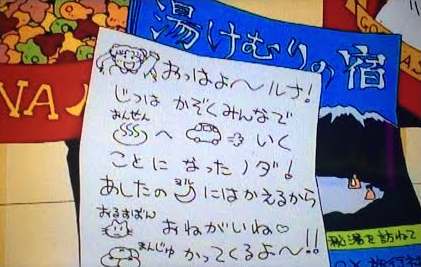 湯けむりの宿
NA
おっはよ〜ルナ!
じつは かぞくみんなで
おんせん
へ いく
ことに なったノダ!
あしたの よる にはかえるから
おるすばん
おねがいね♡
まんじゅ かってくるよ〜!!
秘湯を訪ねて